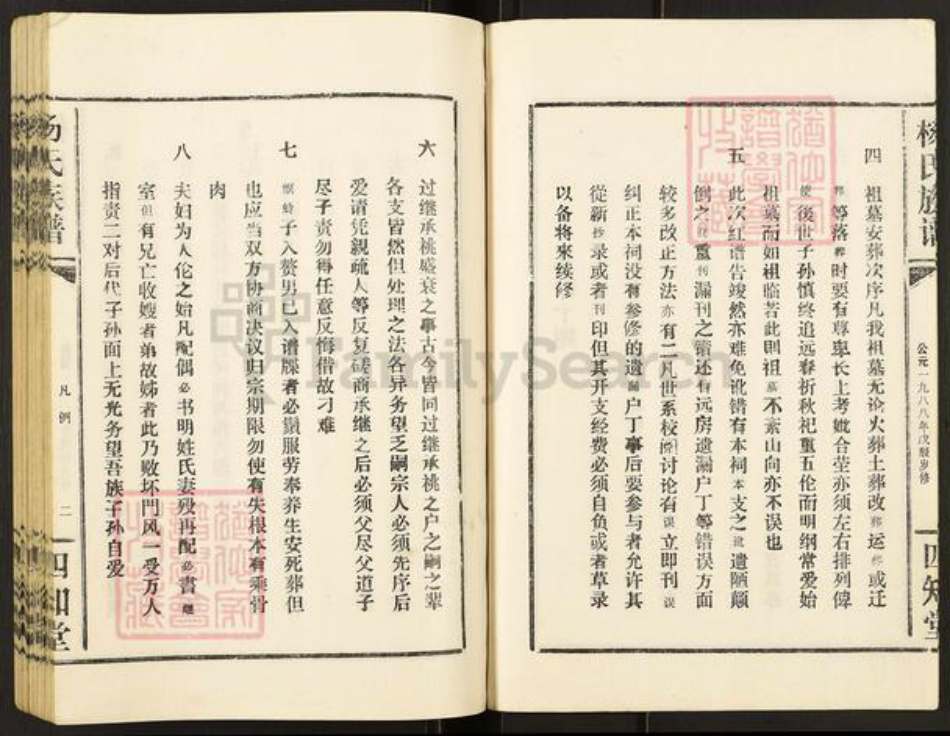 杨氏族谱
公元一九八八年戊辰岁修
四知堂
四 祖墓安葬次序凡我祖墓无论火葬土葬改葬运葬或迁
葬等落葬时要有尊卑长上考妣合茔亦须左右排列俾
使後世子孙慎终追远春祈秋祀重五伦而明纲常爱始
祖墓而如祖临若此则祖墓不紊山向亦不误也
五 此次红谱告竣然亦难免讹错有本祠本支之讹遗陋颠
倒之处重刊漏刊之错还有远房遗漏户丁等错误方面
较多改正方法亦有二凡世系校阅讨论有误立即刊误
纠正本祠没有参修的遗漏户丁事后要参与者允许其
從新抄录或者刊印但其开支经费必须自负或者草录
以备将来续修
六 过继承祧盛衰之事古今皆同过继承祧之户之嗣之辈
各支皆然但处理之法各异务望乏嗣宗人必须先序后
爱请凭親疏人等反复磋商承继之后必须父尽父道子
尽子责勿得任意反悔借故刁难
七 螟蛉子入赘男已入谱牒者必须服劳奉养生安死葬但
也应当双方协商决议归宗期限勿使有失根本有乘骨
肉
八 夫妇为人伦之始凡配偶必书明姓氏妻殁再配必書继
室但有兄亡收嫂者弟故姊者此乃败坏門风一受万人
指责二对后代子孙面上无光务望吾族子孙自爱
杨氏族谱
凡例
二
四知堂
FamilySearch